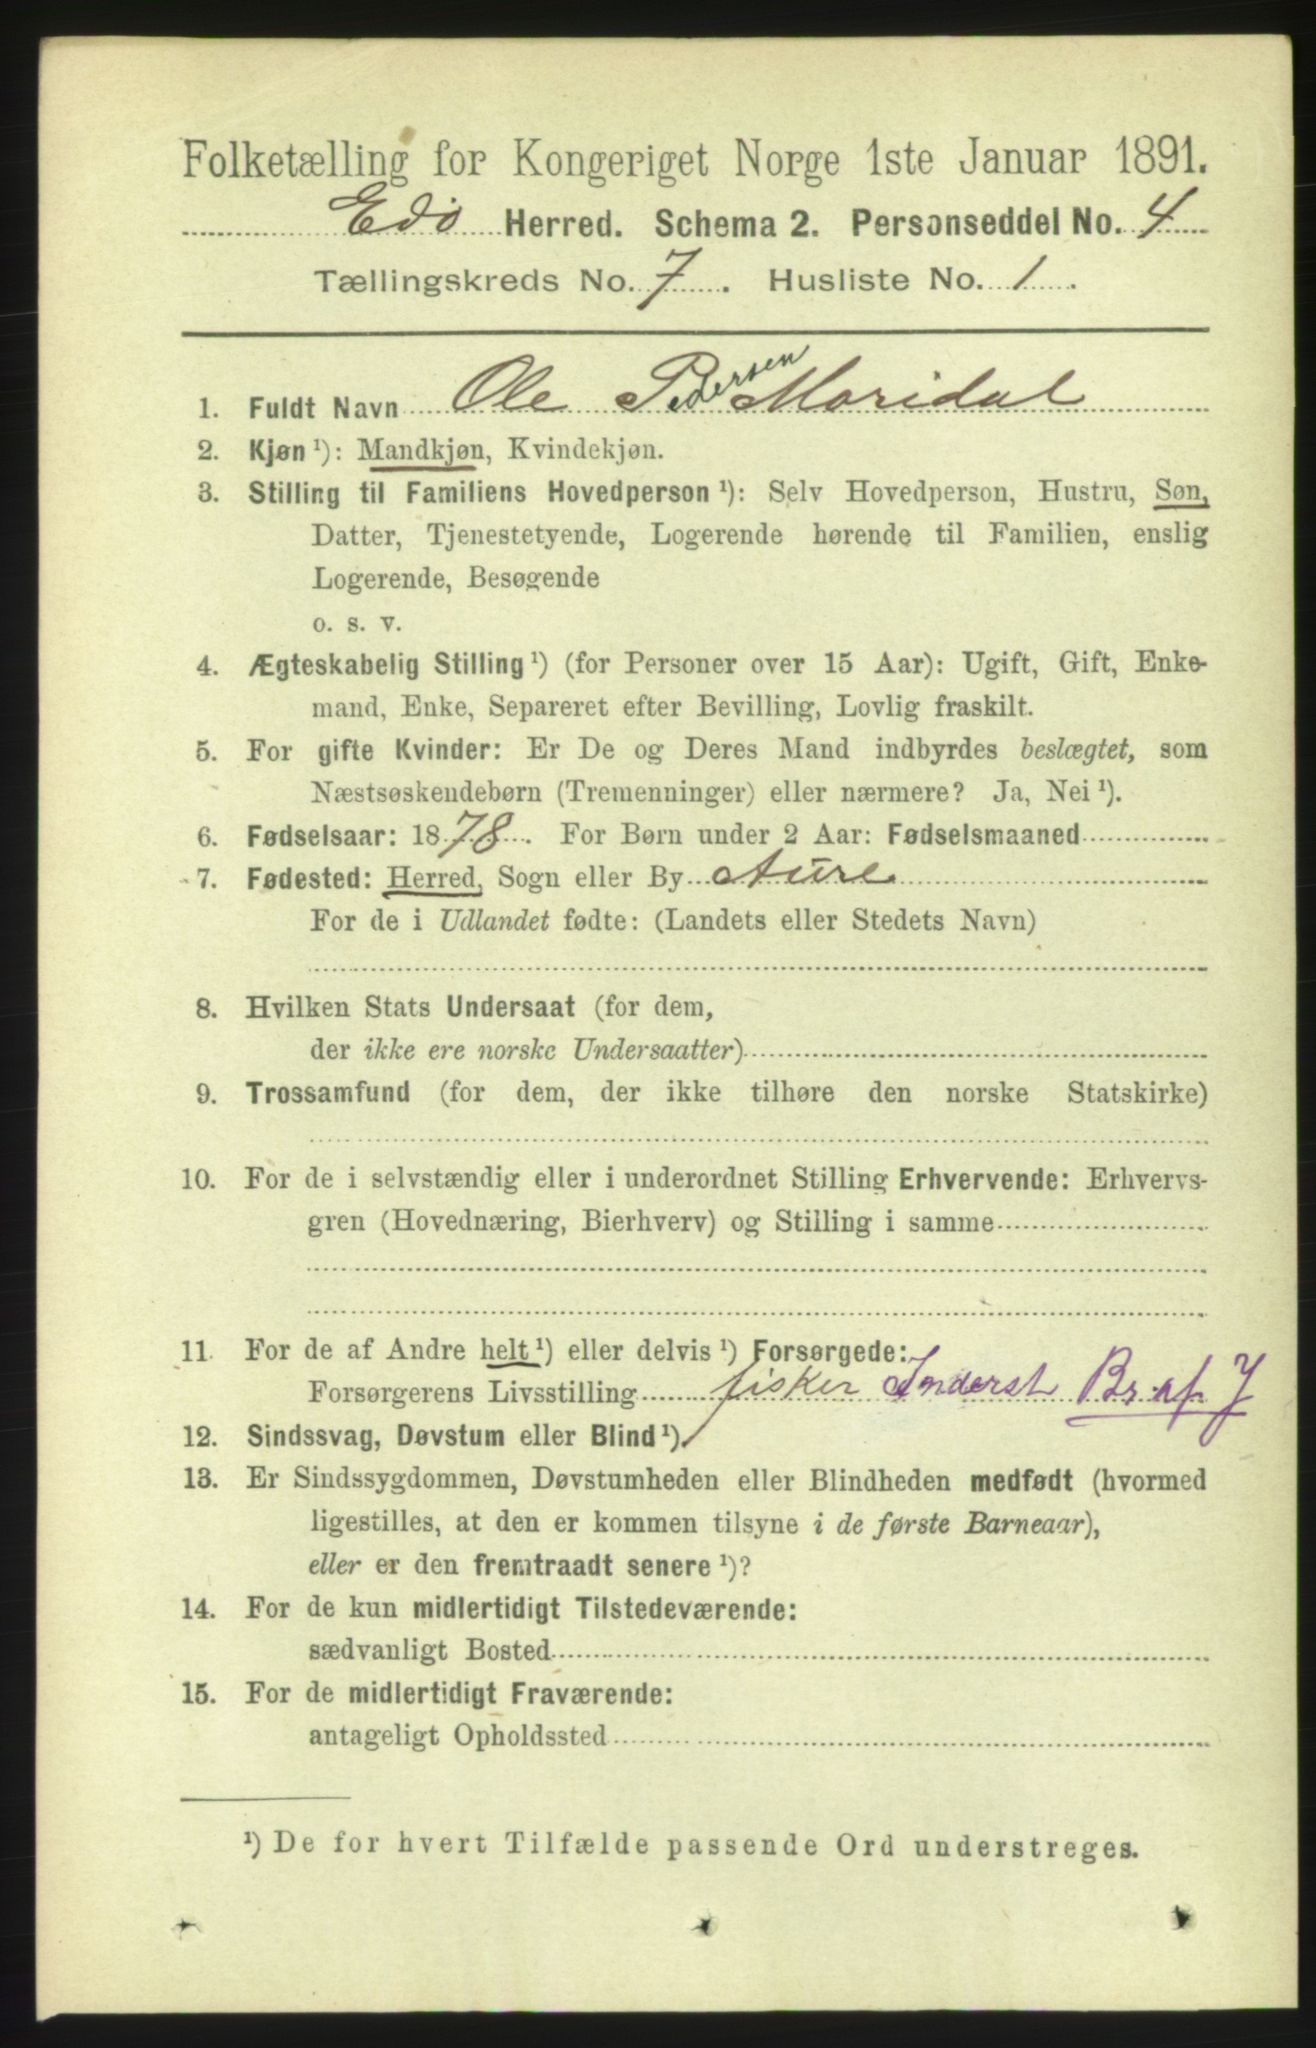 Folketælling for Kongeriget Norge 1ste Januar 1891.
Edö Herred. Schema 2. Personseddel No. 4
Tællingskreds No. 7. Husliste No. 1.
1. Fuldt Navn Ole Pedersen Moridal
2. Kjøn ¹): Mandkjøn, Kvindekjøn.
3. Stilling til Familiens Hovedperson ¹): Selv Hovedperson, Hustru, Søn,
Datter, Tjenestetyende, Logerende hørende til Familien, enslig
Logerende, Besøgende
o. s. v.
4. Ægteskabelig Stilling ¹) (for Personer over 15 Aar): Ugift, Gift, Enke-
mand, Enke, Separeret efter Bevilling, Lovlig fraskilt.
5. For gifte Kvinder: Er De og Deres Mand indbyrdes beslægtet, som
Næstsøskendebørn (Tremenninger) eller nærmere? Ja, Nei ¹).
6. Fødselsaar: 1878. For Børn under 2 Aar: Fødselsmaaned
7. Fødested: Herred, Sogn eller By Aure
For de i Udlandet fødte: (Landets eller Stedets Navn)
8. Hvilken Stats Undersaat (for dem,
der ikke ere norske Undersaatter)
9. Trossamfund (for dem, der ikke tilhøre den norske Statskirke)
10. For de i selvstændig eller i underordnet Stilling Erhvervende: Erhvervs-
gren (Hovednæring, Bierhverv) og Stilling i samme
11. For de af Andre helt ¹) eller delvis ¹) Forsørgede:
Forsørgerens Livsstilling fisker Inderst Br. af J
12. Sindssvag, Døvstum eller Blind ¹).
13. Er Sindssygdommen, Døvstumheden eller Blindheden medfødt (hvormed
ligestilles, at den er kommen tilsyne i de første Barneaar),
eller er den fremtraadt senere ¹)?
14. For de kun midlertidigt Tilstedeværende:
sædvanligt Bosted
15. For de midlertidigt Fraværende:
antageligt Opholdssted
¹) De for hvert Tilfælde passende Ord understreges.